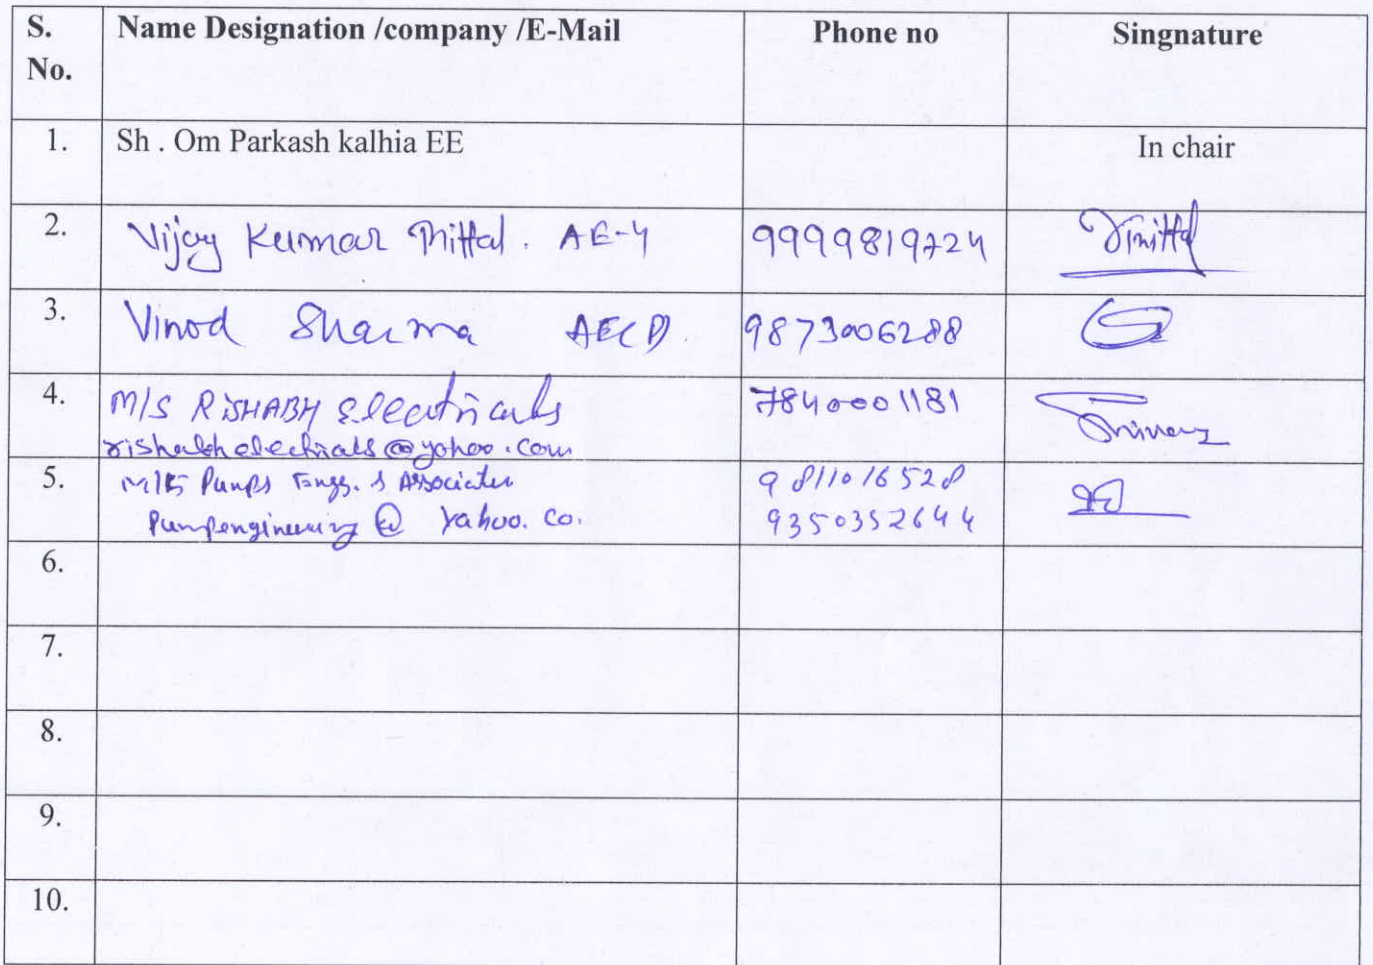 S. No. Name Designation /company /E-Mail Phone no Singnature
1. Sh . Om Parkash kalhia EE In chair
2. Vijay Kumar Mittal. AE-4 9999819724 Vmittal
3. Vinod Sharma AE(P) 9873006288
4. M/S RISHABH electricals 7840001181
rishabhelectricals@yahoo.com
5. M/s Pumps Engs. & Associates 9811016528
Pumpengineering@yahoo.co. 9350352644
6.
7.
8.
9.
10.